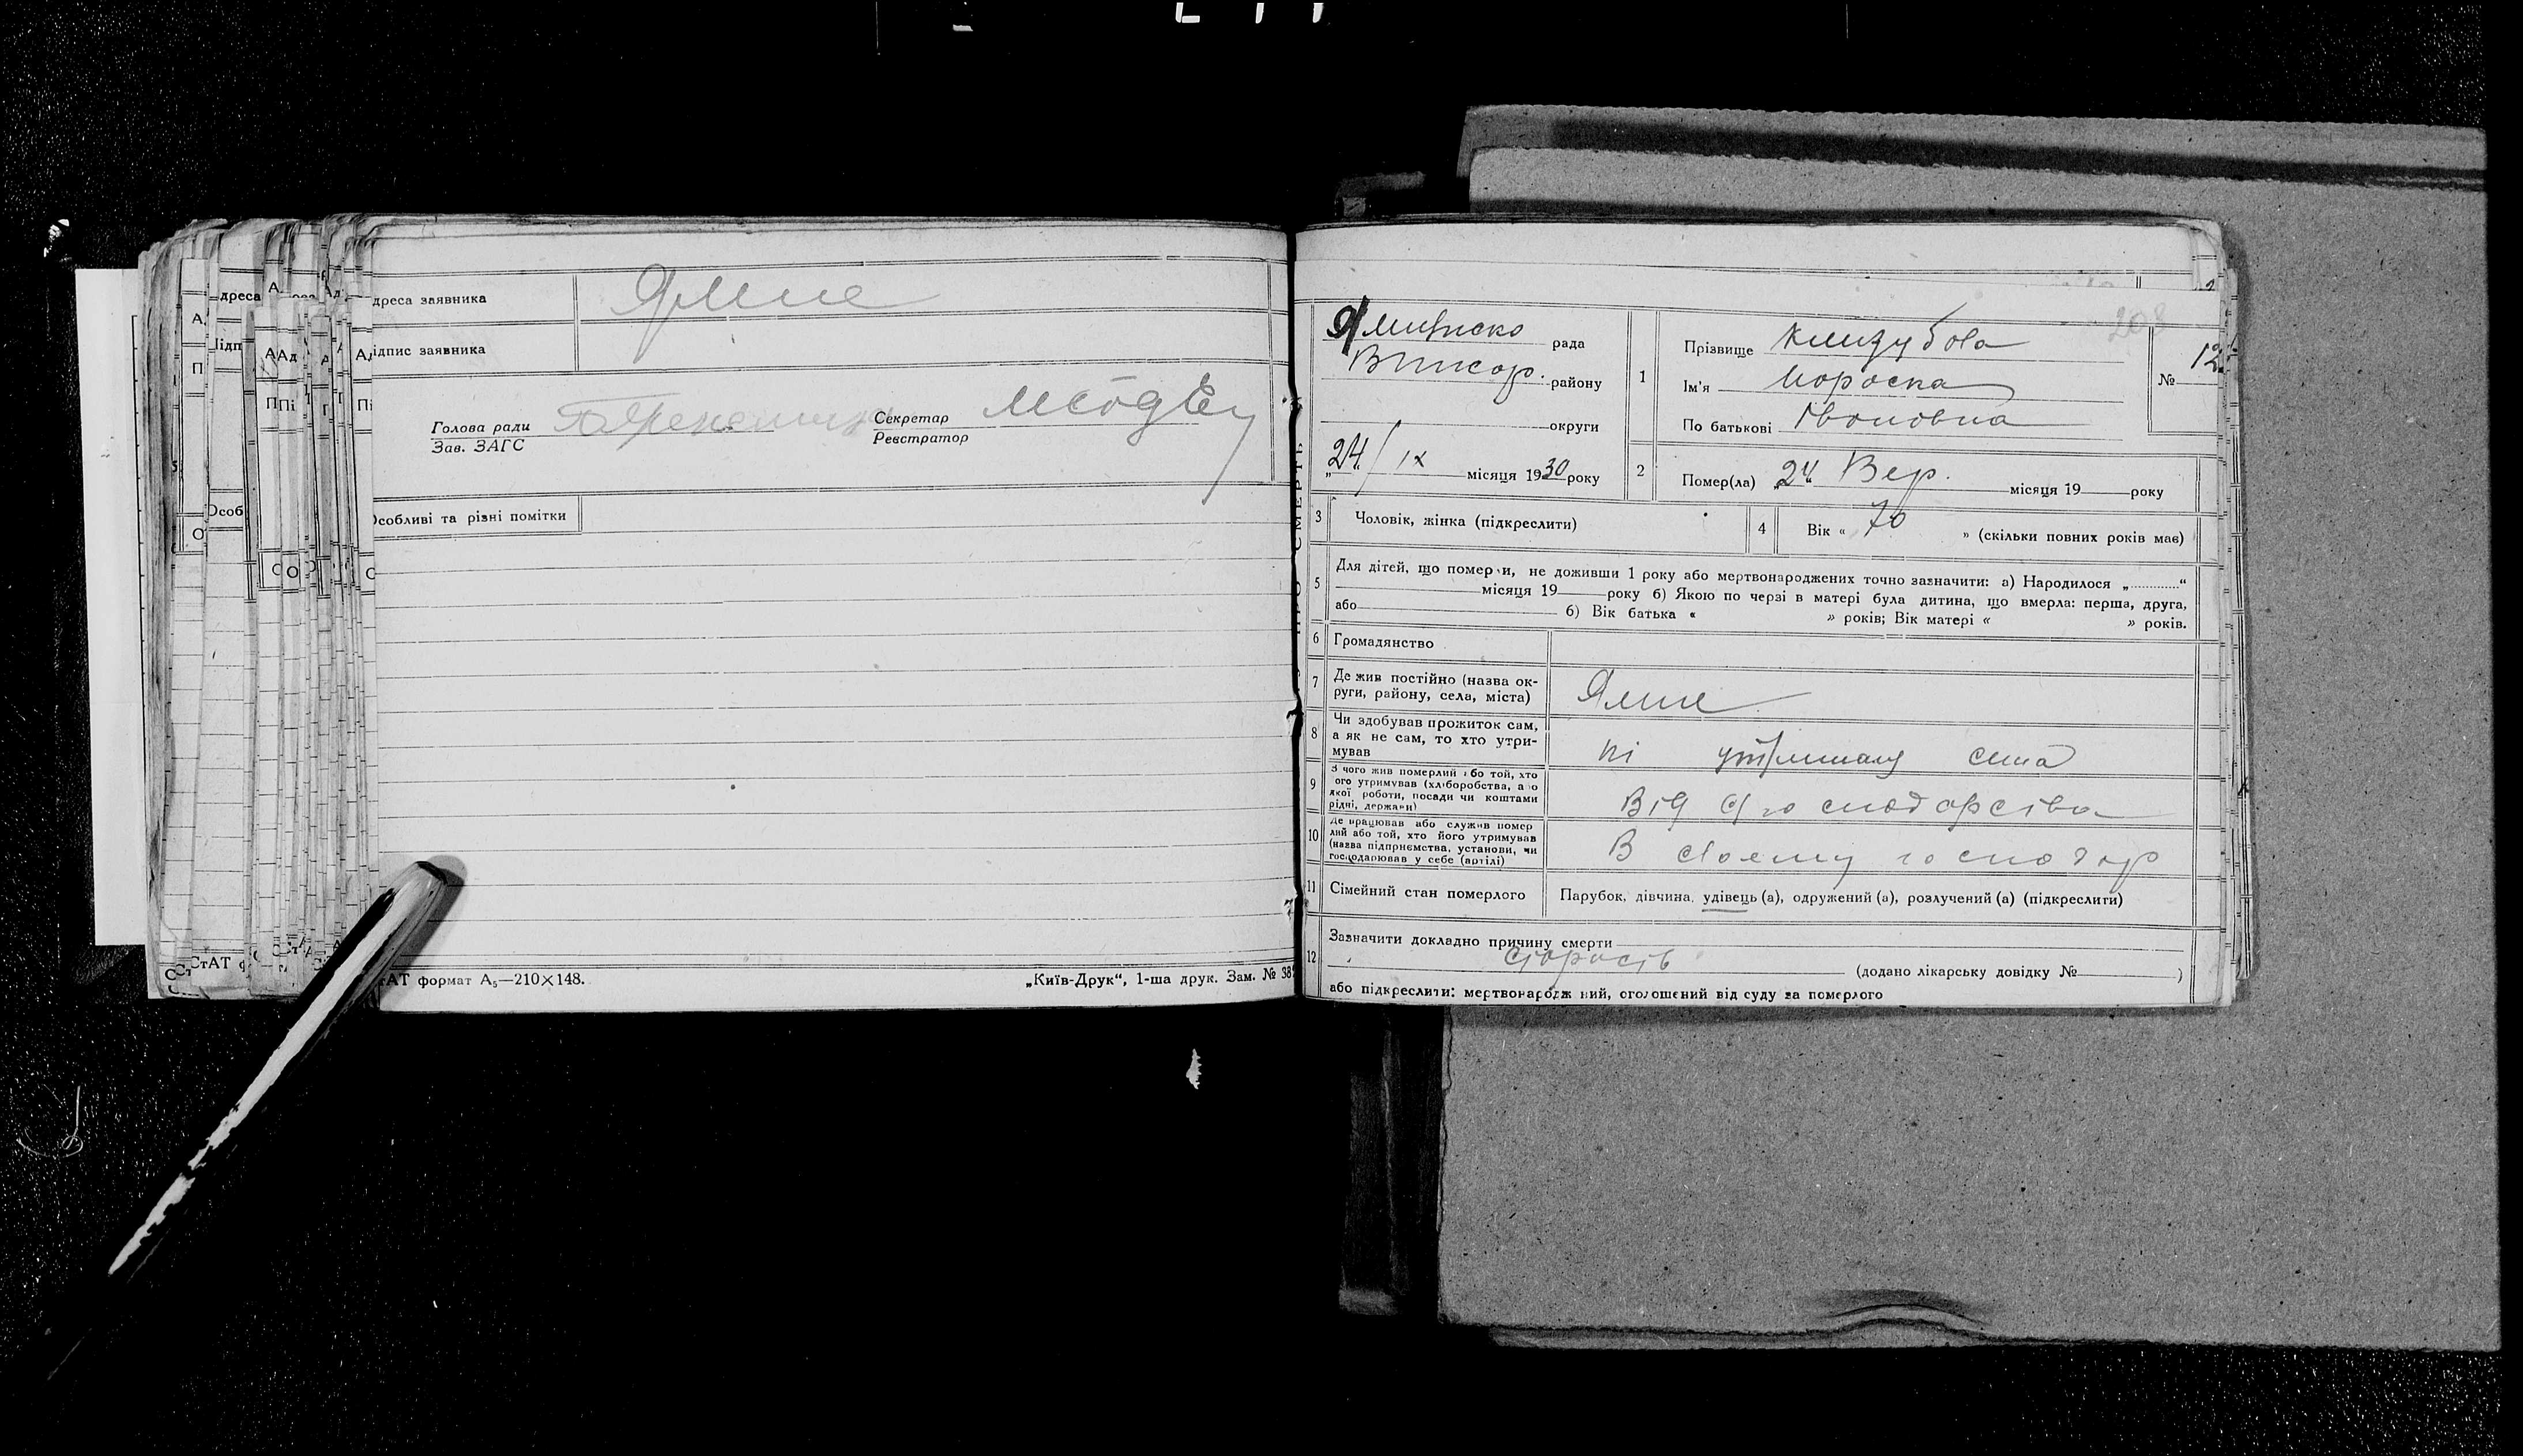 дреса заявника Ямне
ідпис заявника
Голова ради
Зав. ЗАГС
Секретар
Реєстратор
Особливі та різні помітки
тАТ формат А₅—210×148.
„Київ-Друк“, 1-ша друк. Зам. № 38
рада
району
округи
„24“ / IX місяця 1930 року
1
Прізвище
Ім'я
По батькові
№ 12
208
2
Помер(ла) „24 Вер. місяця 19 року
3 Чоловік, жінка (підкреслити)
4 Вік « 70 » (скільки повних років має)
5 Для дітей, що померли, не доживши 1 року або мертвонароджених точно зазначити: а) Народилося „ “
місяця 19 року б) Якою по черзі в матері була дитина, що вмерла: перша, друга,
або б) Вік батька « » років; Вік матері « » років.
6 Громадянство
7 Де жив постійно (назва ок-
руги, району, села, міста) Ямне
8 Чи здобував прожиток сам,
а як не сам, то хто утри-
мував
ні сина
9 З чого жив померлий або той, хто
ого утримував (хліборобства, або
якої роботи, посади чи коштами
рідні, держави)
Від господарства
10 Де працював або служив помер
лий або той, хто його утримував
(назва підприємства, установи, чи
господарював у себе (артілі)
В своему господар
11 Сімейний стан померлого Парубок, дівчина, удівець (а), одружений (а), розлучений (а) (підкреслити)
12 Зазначити докладно причину смерти
старость (додано лікарську довідку № )
або підкреслити: мертвонародж ний, оголошений від суду за померлого